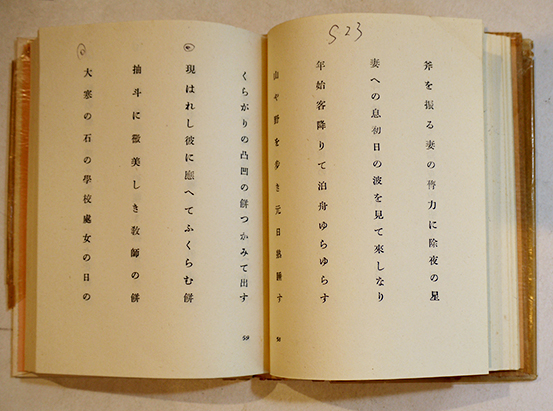 S23
斧を振る妻の膂力に除夜の星
妻への息初日の波を見て來しなり
年始客降りて泊舟ゆらゆらす
山や野を歩き元日熟睡す
58
くらがりの凸凹の餅つかみて出す
現はれし彼に應へてふくらむ餅
抽斗に黴美しき教師の餅
大寒の石の學校處女の日の
59